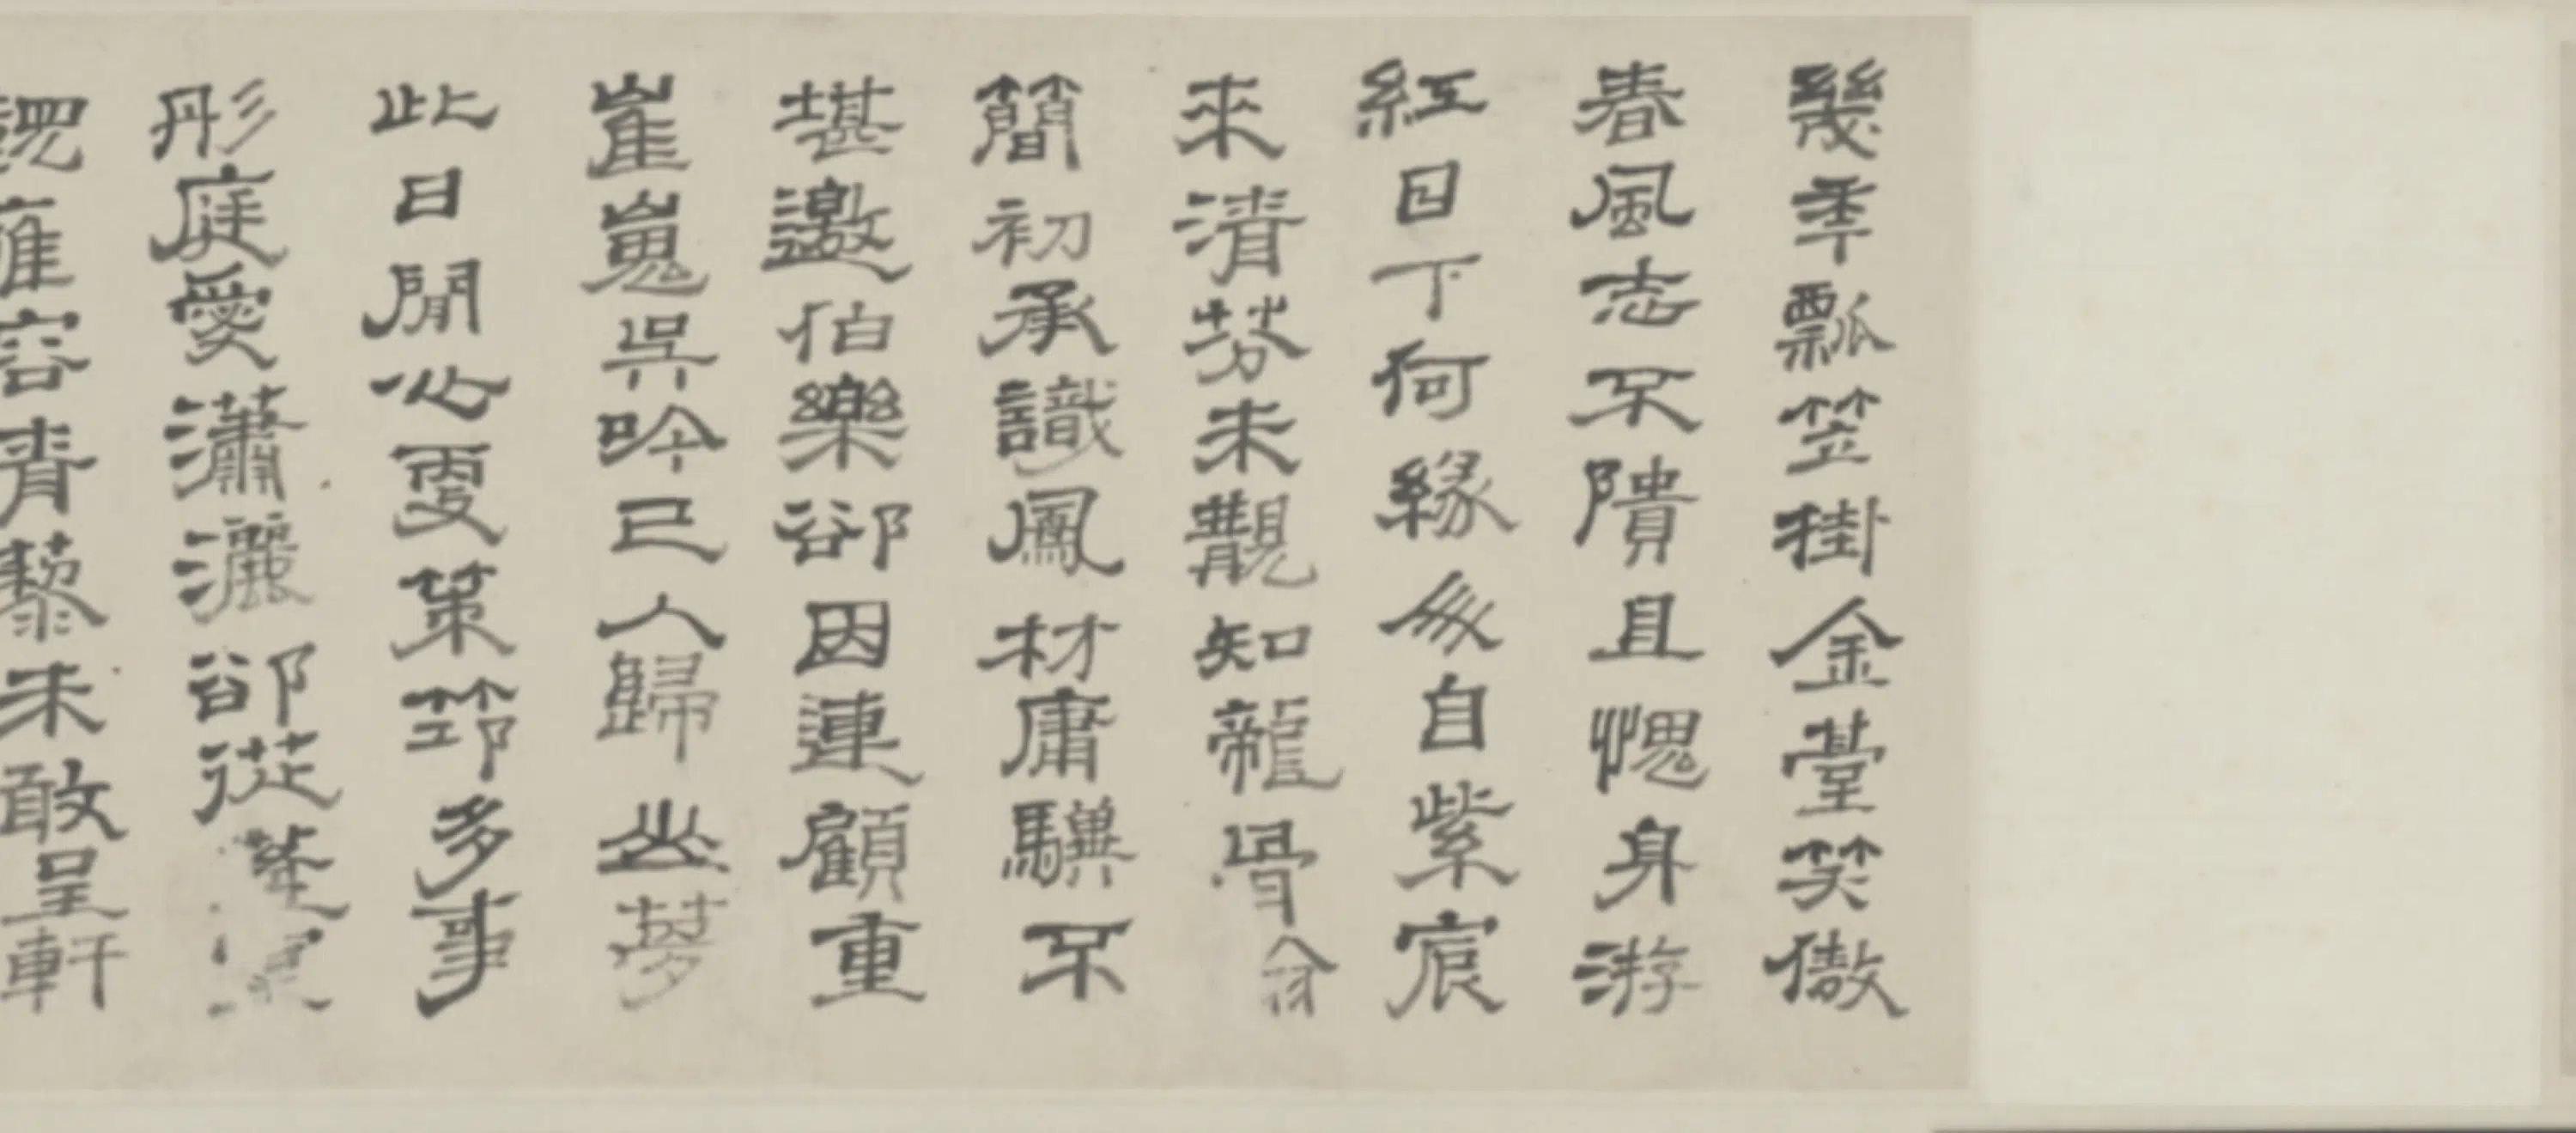 幾季瓢笠掛金臺笑傲
春風志不隤且愧身游
紅日下何緣承自紫宸
來清芬未覿知龍骨僉
簡初承識鳳材庸驥不
堪邀伯樂卻因連顧重
崔嵬吳吟已人歸山夢
此日閒心更策筇多事
彤庭愛瀟灑卻從
雍容青藜未敢呈軒